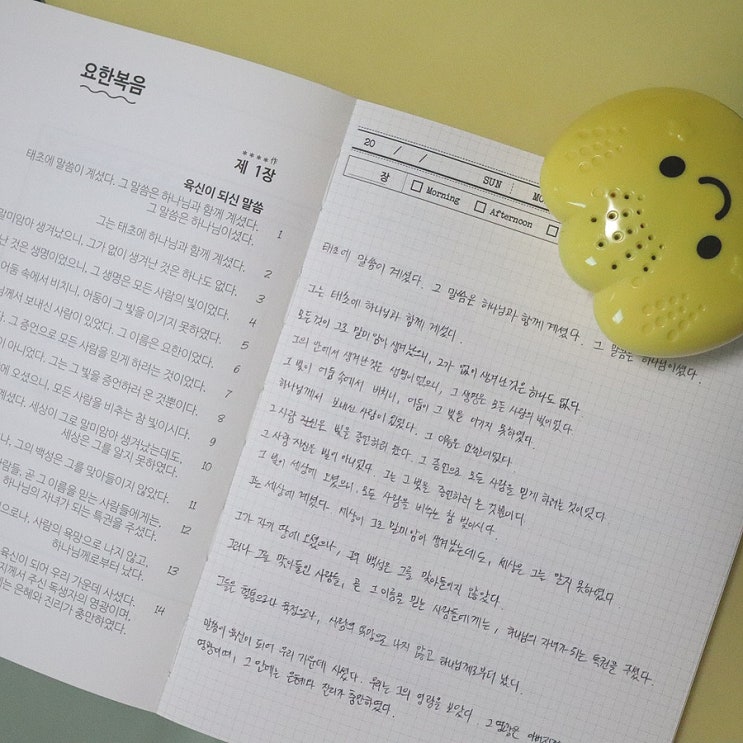 요한복음
****作
제 1장
육신이 되신 말씀
태초에 말씀이 계셨다. 그 말씀은 하나님과 함께 계셨다.
그 말씀은 하나님이셨다. 1
그는 태초에 하나님과 함께 계셨다. 2
말미암아 생겨났으니, 그가 없이 생겨난 것은 하나도 없다. 3
난 것은 생명이었으니, 그 생명은 모든 사람의 빛이었다. 4
어둠 속에서 비치니, 어둠이 그 빛을 이기지 못하였다. 5
께서 보내신 사람이 있었다. 그 이름은 요한이었다. 6
다. 그 증언으로 모든 사람을 믿게 하려는 것이었다. 7
이 아니었다. 그는 그 빛을 증언하러 온 것뿐이다. 8
에 오셨으니, 모든 사람을 비추는 참 빛이시다. 9
계셨다. 세상이 그로 말미암아 생겨났는데도,
세상은 그를 알지 못하였다. 10
나, 그의 백성은 그를 맞아들이지 않았다. 11
사람들, 곧 그 이름을 믿는 사람들에게는,
하나님의 자녀가 되는 특권을 주셨다. 12
으로나, 사람의 욕망으로 나지 않고,
하나님께로부터 났다. 13
육신이 되어 우리 가운데 사셨다. 14
지께서 주신 독생자의 영광이며,
에는 은혜와 진리가 충만하였다.
20 / /
SUN
장 Morning Afternoon
태초에 말씀이 계셨다. 그 말씀은 하나님과 함께 계셨다. 그 말씀은 하나님이셨다.
그는 태초에 하나님과 함께 계셨다.
모든것이 그로 말미암아 생겨났으니, 그가 없이 생겨난 것은 하나도 없다.
그의 안에서 생겨난 것은 생명이었으니, 그 생명은 모든 사람의 빛이었다.
그 빛이 어둠 속에서 비치니, 어둠이 그 빛을 이기지 못하였다.
하나님께서 보내신 사람이 있었다. 그 이름은 요한이었다.
그 사람은 빛을 증언하러 왔다. 그 증언으로 모든 사람을 믿게 하려는 것이었다.
그 사람 자신은 빛이 아니었다. 그는 그 빛을 증언하러 온 것뿐이다.
그 빛이 세상에 오셨으니, 모든 사람을 비추는 참 빛이시다.
그는 세상에 계셨다. 세상이 그로 말미암아 생겨났는데도, 세상은 그를 알지 못하였다.
그가 자기 땅에 오셨으나, 그의 백성은 그를 맞아들이지 않았다.
그러나 그를 맞아들인 사람들, 곧 그 이름을 믿는 사람들에게는, 하나님의 자녀가 되는 특권을 주셨다.
그들은 혈통으로나 육정으로나, 사람의 욕망으로 나지 않고 하나님께로부터 났다.
말씀이 육신이 되어 우리 가운데 사셨다. 우리는 그의 영광을 보았다. 그 영광은
영광이며, 그 안에는 은혜와 진리가 충만하였다.